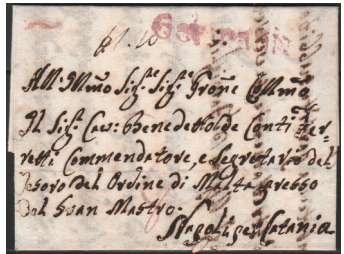 All' Illmo Sigre Sigre Prone Colmo
Il Sigr Cav: Benedetto de Conti Fer-
retti Commendatore, e Segretario del
Tesoro del Ordine di Malta presso
Del Gran Mastro.
Napoli per Catania